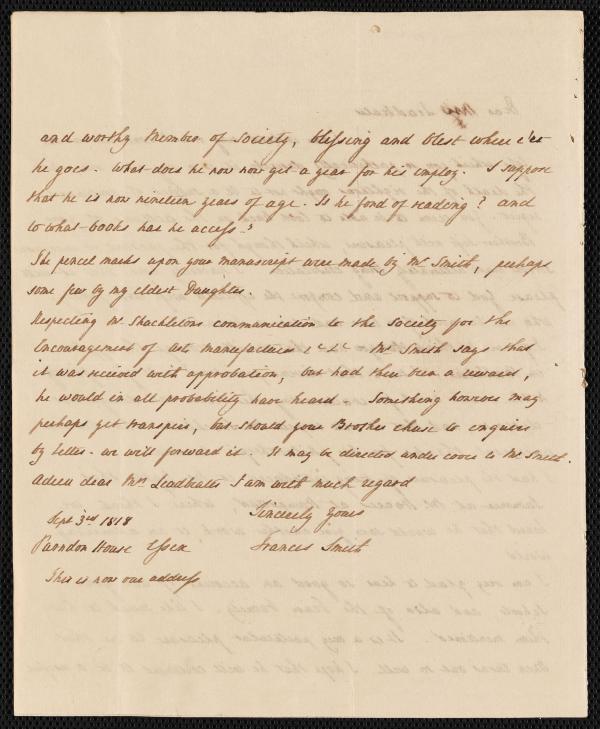 and worthy Member of Society, blessing and blest where e'er
he goes - What does he now now get a year for his employ. I suppose
that he is now nineteen years of age. Is he fond of reading? and
to what books has he access?
The pencil marks upon your manuscript were made by Mr Smith, perhaps
some few by my eldest Daughter.
Respecting Mr Shackletons communication to the Society for the
Encouragement of Arts Manufactures &c &c Mr Smith says that
it was received with approbation, but had there been a reward,
he would in all probability have heard - Something however may
perhaps yet transpire, but should your Brother chuse to enquire
by letter - we will forward it. It may be directed under cover to Mr Smith.
Adieu dear Mrs Leadbeater I am with much regard
Sincerely Yours
Sept 3rd 1818
Parndon House Essex Frances Smith
This is now our address